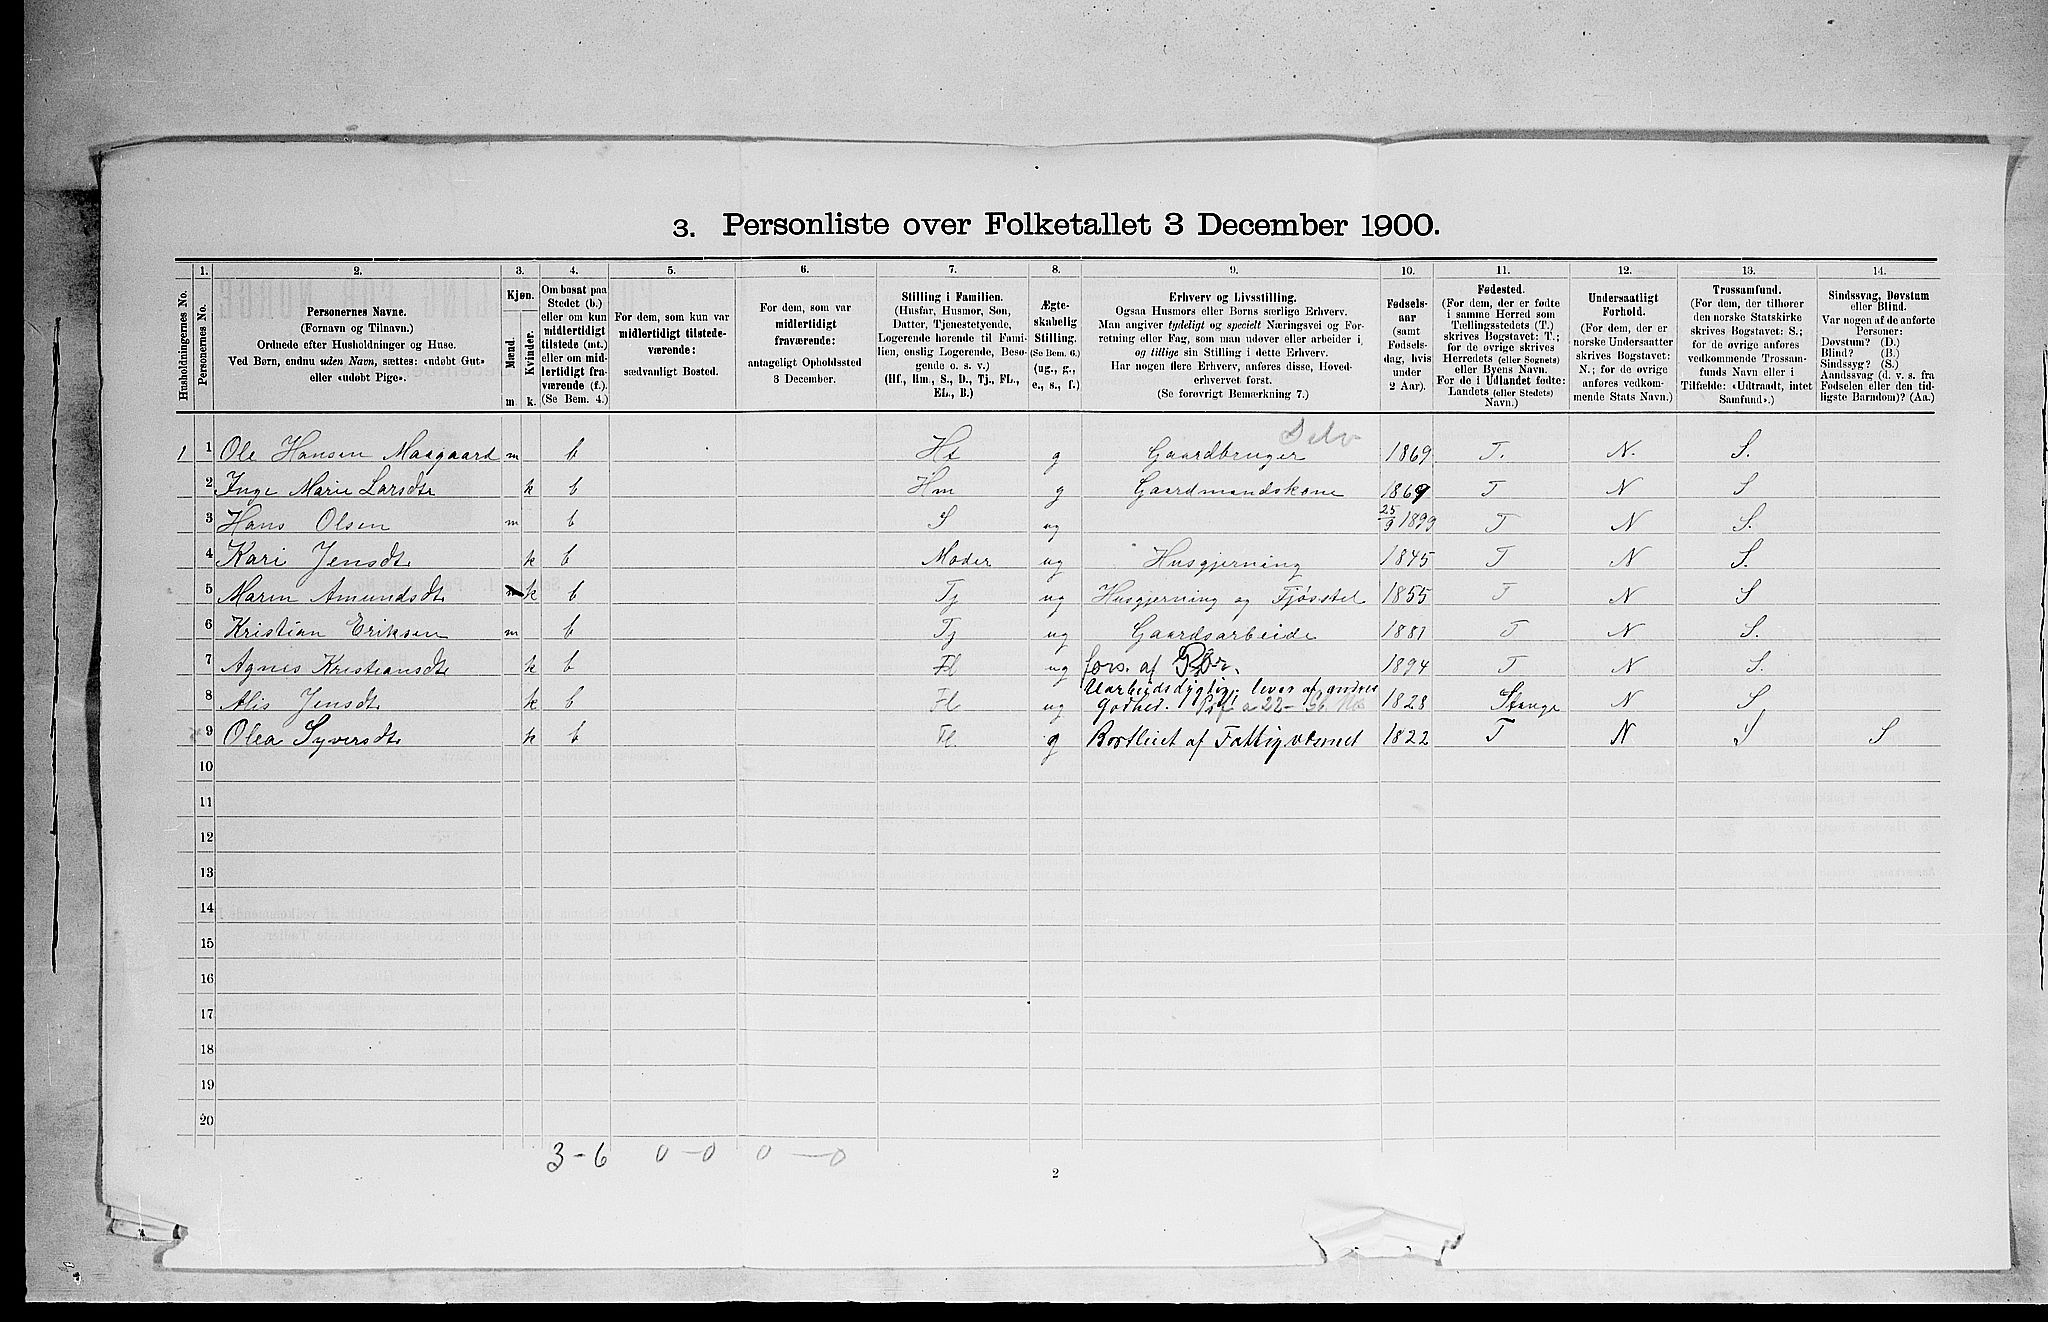 3. Personliste over Folketallet 3 December 1900.
1. 2. 3. 4. 5. 6. 7. 8. 9. 10. 11. 12. 13. 14.
Husholdningernes No.
Personernes No.
Personernes Navne.
(Fornavn og Tilnavn.)
Ordnede efter Husholdninger og Huse.
Ved Børn, endnu uden Navn, sættes: «udøbt Gut»
eller «udøbt Pige».
Kjøn.
Mænd.
Kvinder.
m k.
Om bosat paa
Stedet (b.)
eller om kun
midlertidigt
tilstede (mt.)
eller om mid-
lertidigt fra-
værende (f.)
(Se Bem. 4.)
For dem, som kun var
midlertidigt tilstede-
værende:
sædvanligt Bosted.
For dem, som var
midlertidigt
fraværende:
antageligt Opholdssted
3 December.
Stilling i Familien.
(Husfar, Husmor, Søn,
Datter, Tjenestetyende,
Logerende hørende til Fami-
lien, enslig Logerende, Besø-
gende o. s. v.)
(Hf., Hm., S., D., Tj., FL.,
EL., B.)
Ægte-
skabelig
Stilling.
(Se Bem. 6.)
(ug., g.,
e., s., f.)
Erhverv og Livsstilling.
Ogsaa Husmors eller Børns særlige Erhverv.
Man angiver tydeligt og specielt Næringsvei og For-
retning eller Fag, som man udøver eller arbeider i,
og tillige sin Stilling i dette Erhverv.
Har nogen flere Erhverv, anføres disse, Hoved-
erhvervet først.
(Se forøvrigt Bemærkning 7.)
Fødsels-
aar
(samt
Fødsels-
dag, hvis
under
2 Aar).
Fødested.
(For dem, der er fødte
i samme Herred som
Tællingsstedets (T.)
skrives Bogstavet: T.;
for de øvrige skrives
Herredets (eller Sognets)
eller Byens Navn.
For de i Udlandet fødte:
Landets (eller Stedets)
Navn.)
Undersaatligt
Forhold.
(For dem, der er
norske Undersaatter
skrives Bogstavet:
N.; for de øvrige
anføres vedkom-
mende Stats Navn.)
Trossamfund.
(For dem, der tilhører
den norske Statskirke
skrives Bogstavet: S.;
for de øvrige anføres
vedkommende Trossam-
funds Navn eller i
Tilfælde: «Udtraadt, intet
Samfund».)
Sindssvag, Døvstum
eller Blind.
Var nogen af de anførte
Personer:
Døvstum? (D.)
Blind? (B.)
Sindssyg? (S.)
Aandssvag (d. v. s. fra
Fødselen eller den tid-
ligste Barndom)? (Aa.)
Selv
1 1 Ole Hansen Maagaard m b Hf g Gaardbruger 1869 T. N. S.
2 Inge Marie Larsdtr k b Hm g Gaardmandskone 1869 T N S
3 Hans Olsen m b S ug 25/9 1899 T N S.
4 Kari Jensdtr k b Moder ug Husgjerning 1845 T N S.
5 Maren Amundsdtr k b Tj ug Husgjerning og Fjøsstel 1855 T N S
6 Kristian Eriksen m b Tj ug Gaardsarbeide 1881 T N S.
7 Agnes Kristiansdtr k b Fl ug fors. af 1894 T N S.
Uarbeidsdygtig. lever af andres
8 Alis Jensdtr k b Fl ug Godhed. 1828 Stange N S
9 Olea Syversdtr k b Fl g Bortleiet af Fattigvæsenet 1822 T N S S
10
11
12
13
14
15
16
17
18
19
20
3-6 0-0 0-0
2